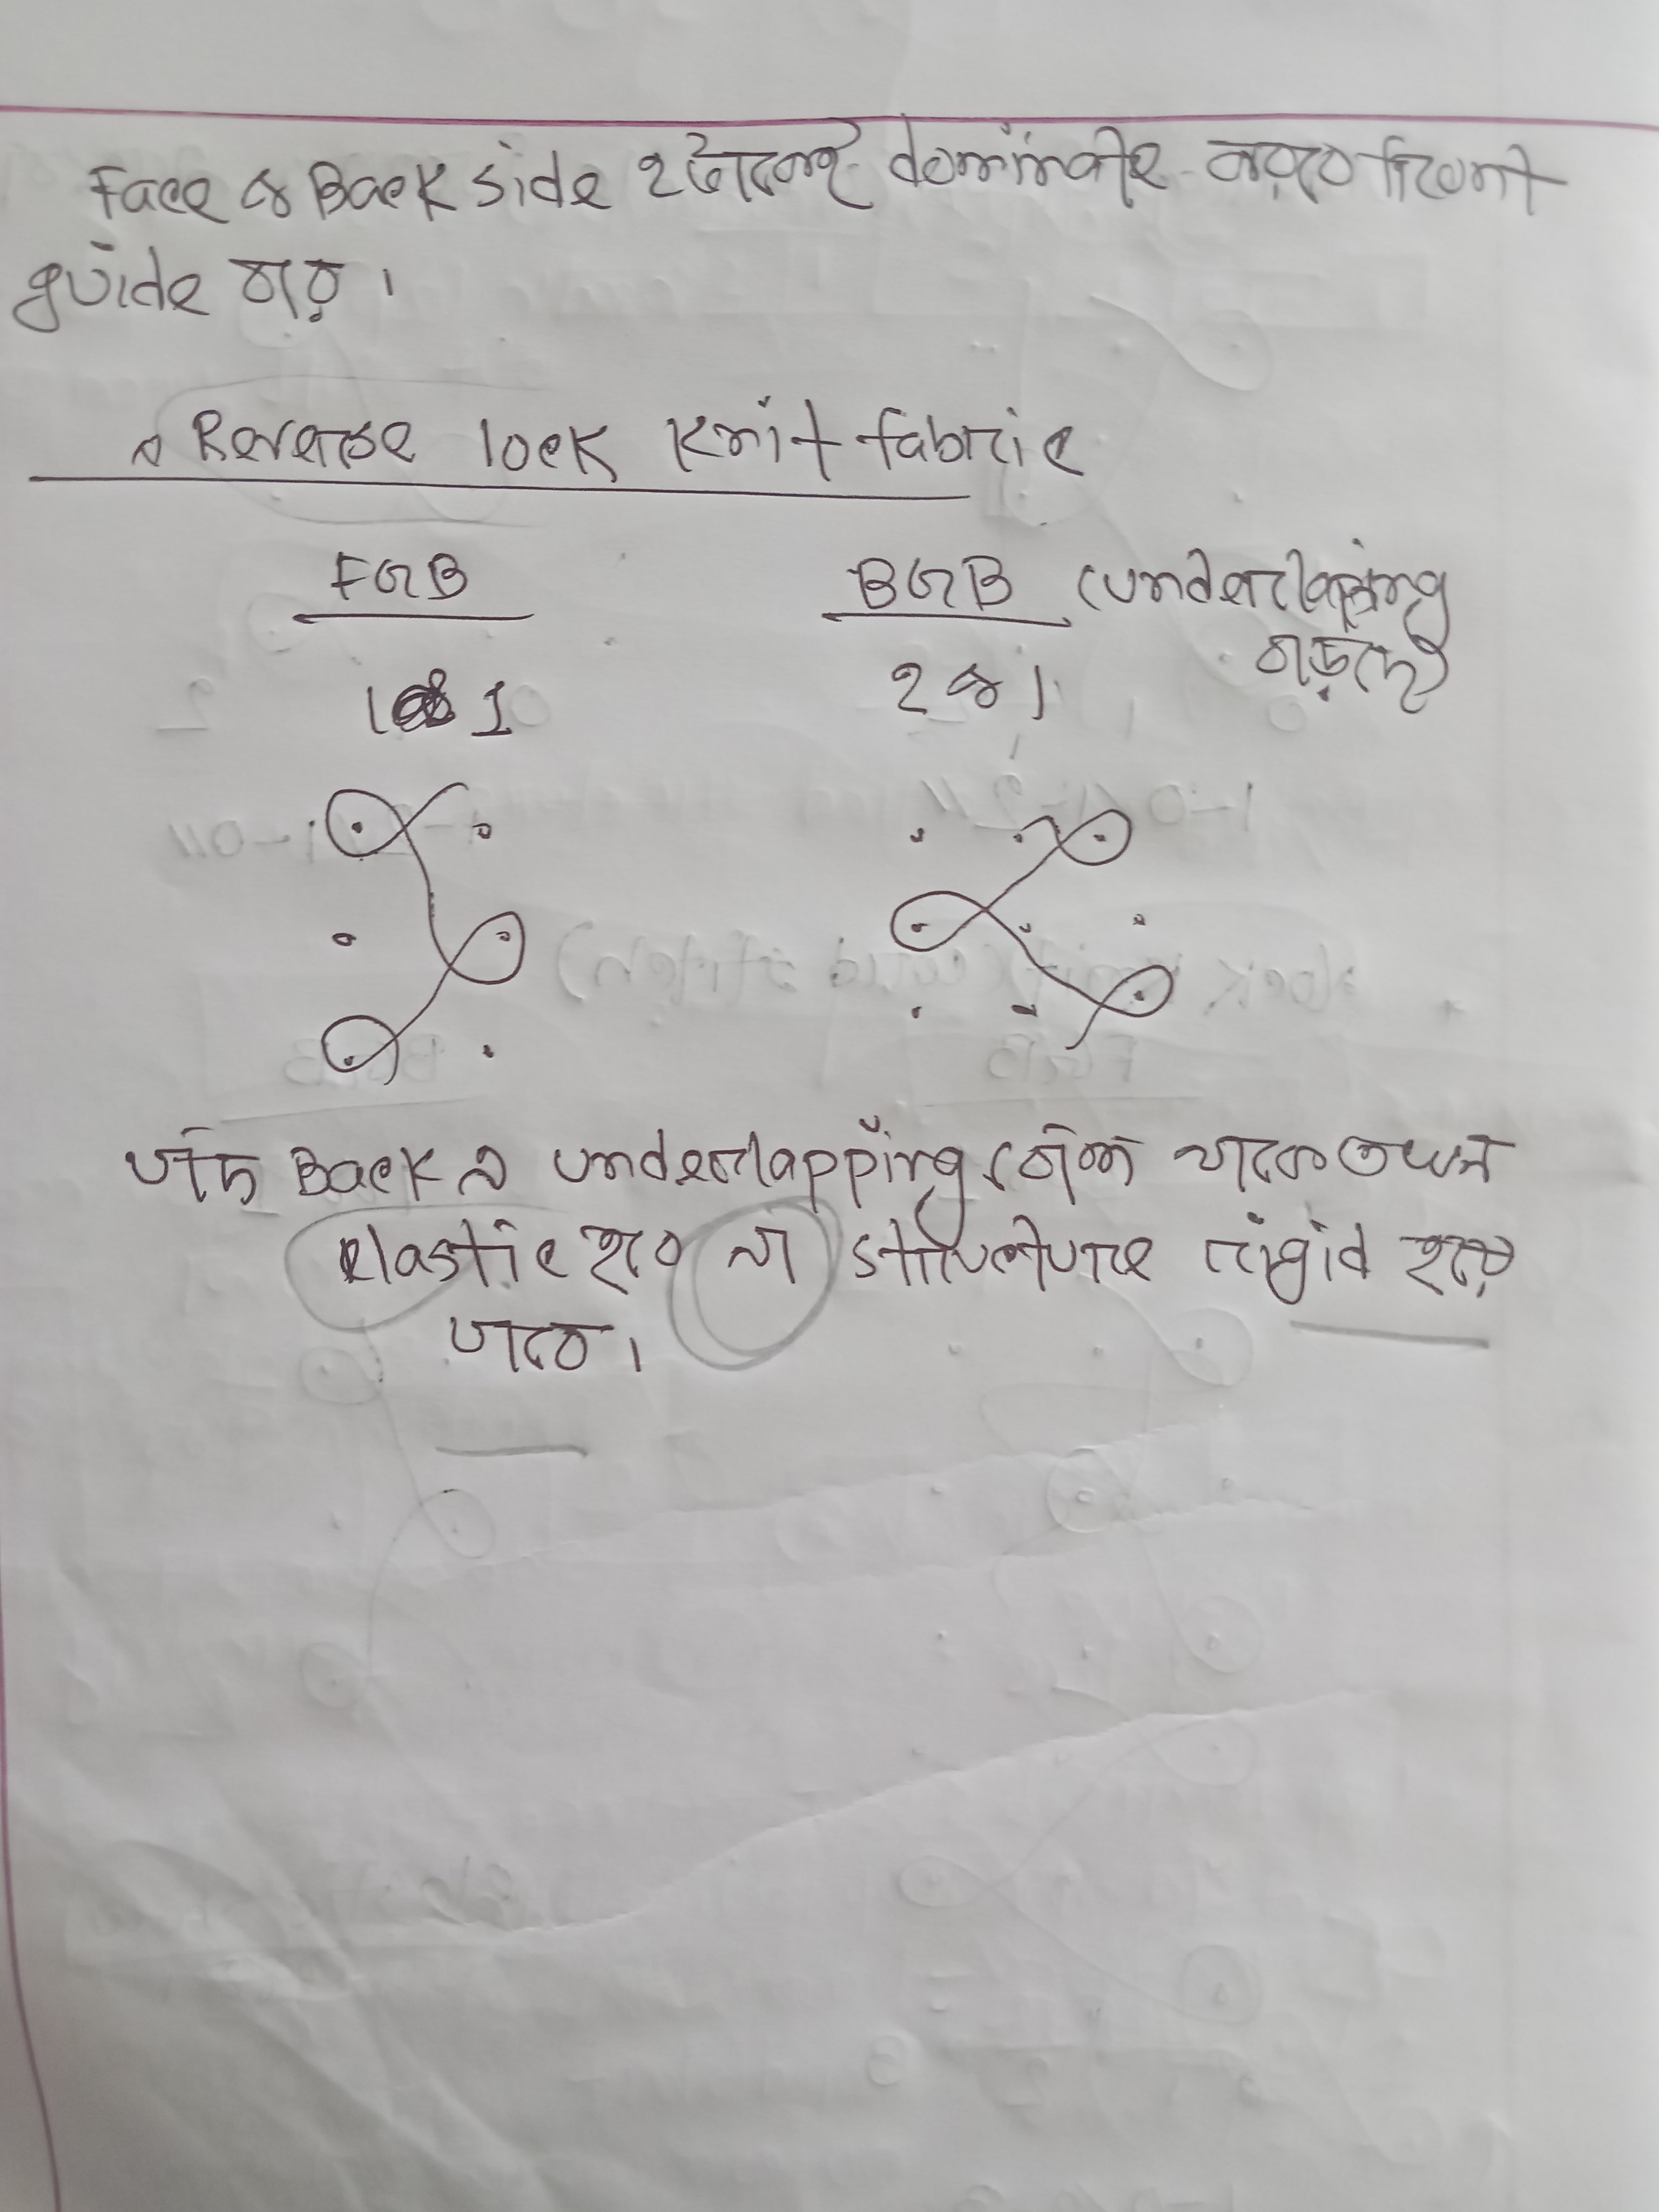 Face ও Back side ২টাকেই dominate করবে front
guide বার।
* Reverse lock knit fabric
FGB
BGB (underlapping
বাড়ছে)
1 1
2 ও 1
যদি Back এ underlapping বেশি থাকে তখন
elastic হবে না structure rigid হয়ে
যাবে।